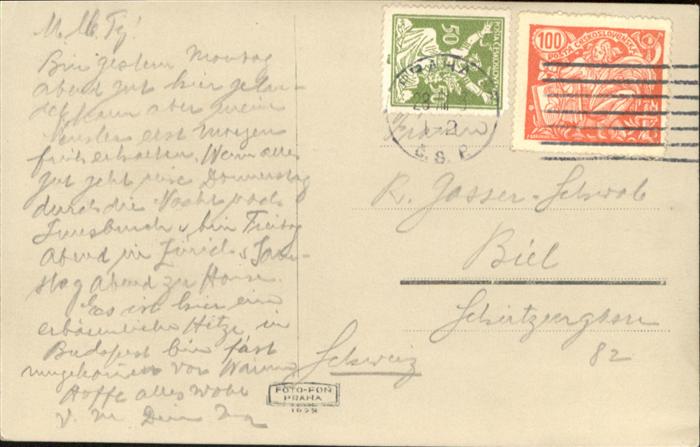 M. Mb. Ty!
Bin gestern Montag
abend gut hier gelan-
det kann aber mein
erst Morgen
früh erhalten. Wenn alles
gut geht reise Donnerstag
durch die Nacht nach
Innsbruck & bin Freitag
Abend in Zürich & Sams-
tag abend zu Hause.
Es ist hier eine
erbärmliche Hitze in
Budapest bin fast
umgekommen vor Wärme
Hoffe alles wohl
50
50
POSTA ČESKOSLOVENSKÁ
100
POŠTA ČESKOSLOVENSKÁ
PRAHA
Č.S.P.
R. Gasser-Schwab
Biel
Schützengasse
82
Schweiz
FOTO-FON
PRAHA